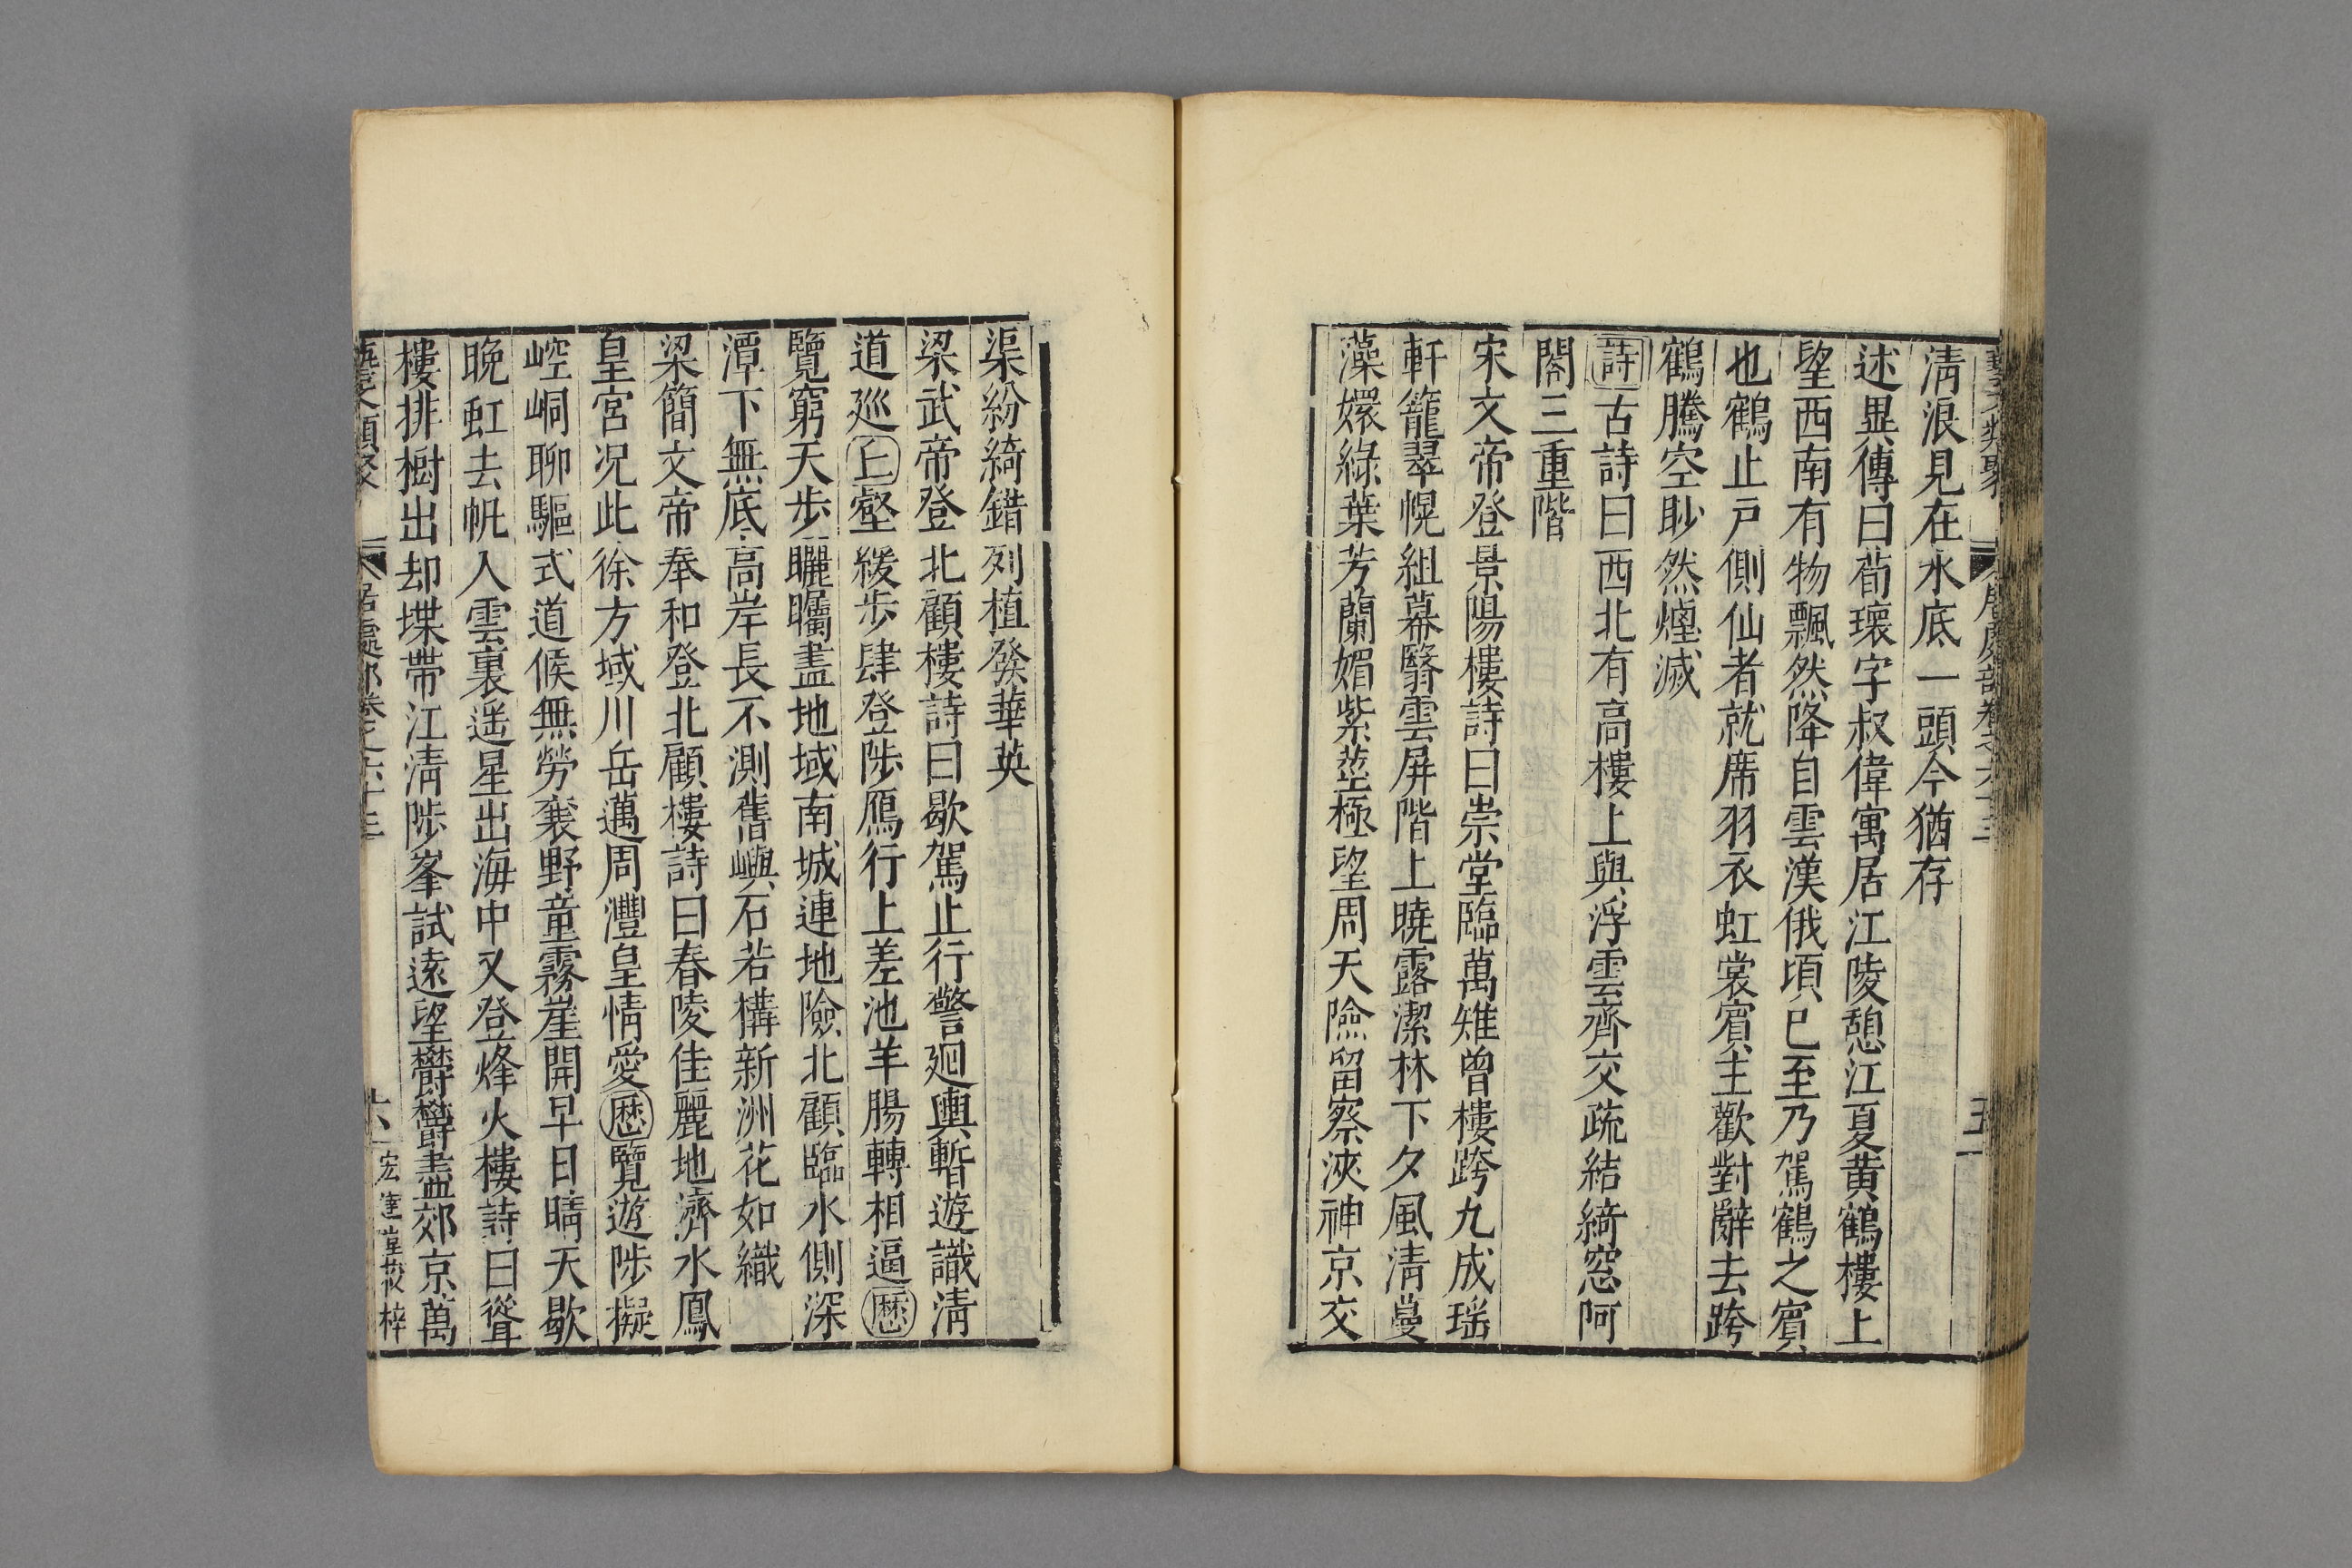 清浪見在水底一頭今猶存
述異傳曰荀瓌字叔偉寓居江陵憩江夏黄鶴樓上
望西南有物飄然降自雲漢俄頃已至乃駕鶴之賓
也鶴止戸側仙者就席羽衣虹裳賓主歡對辭去跨
鶴騰空眇然煙滅
詩古詩曰西北有高樓上與浮雲齊交疏結綺窓阿
閣三重階
宋文帝登景陽樓詩曰崇堂臨萬雉曽樓跨九成瑶
軒籠翠幌組幕翳雲屏階上曉露潔林下夕風清蔓
藻嬛綠葉芳蘭媚紫莖極望周天險留察浹神京交
渠紛綺錯列植發華英
梁武帝登北顧樓詩曰歇駕止行警廻輿暫遊識清
道巡上壑緩步肆登陟鴈行上差池羊腸轉相逼歴
覽窮天步矖矚盡地域南城連地險北顧臨水側深
潭下無底高岸長不測舊嶼石若構新洲花如織
梁簡文帝奉和登北顧樓詩曰春陵佳麗地濟水鳳
皇宮况此徐方域川岳邁周灃皇情愛歴覽遊陟擬
崆峒聊驅式道候無勞襄野童霧崖開早日晴天歇
晩虹去帆入雲裏遥星出海中又登烽火樓詩曰聳
樓排樹出却堞帶江清陟峯試遠望鬱鬱盡郊京萬
藝文類聚 居處部卷之六十三 六 宏達堂校梓